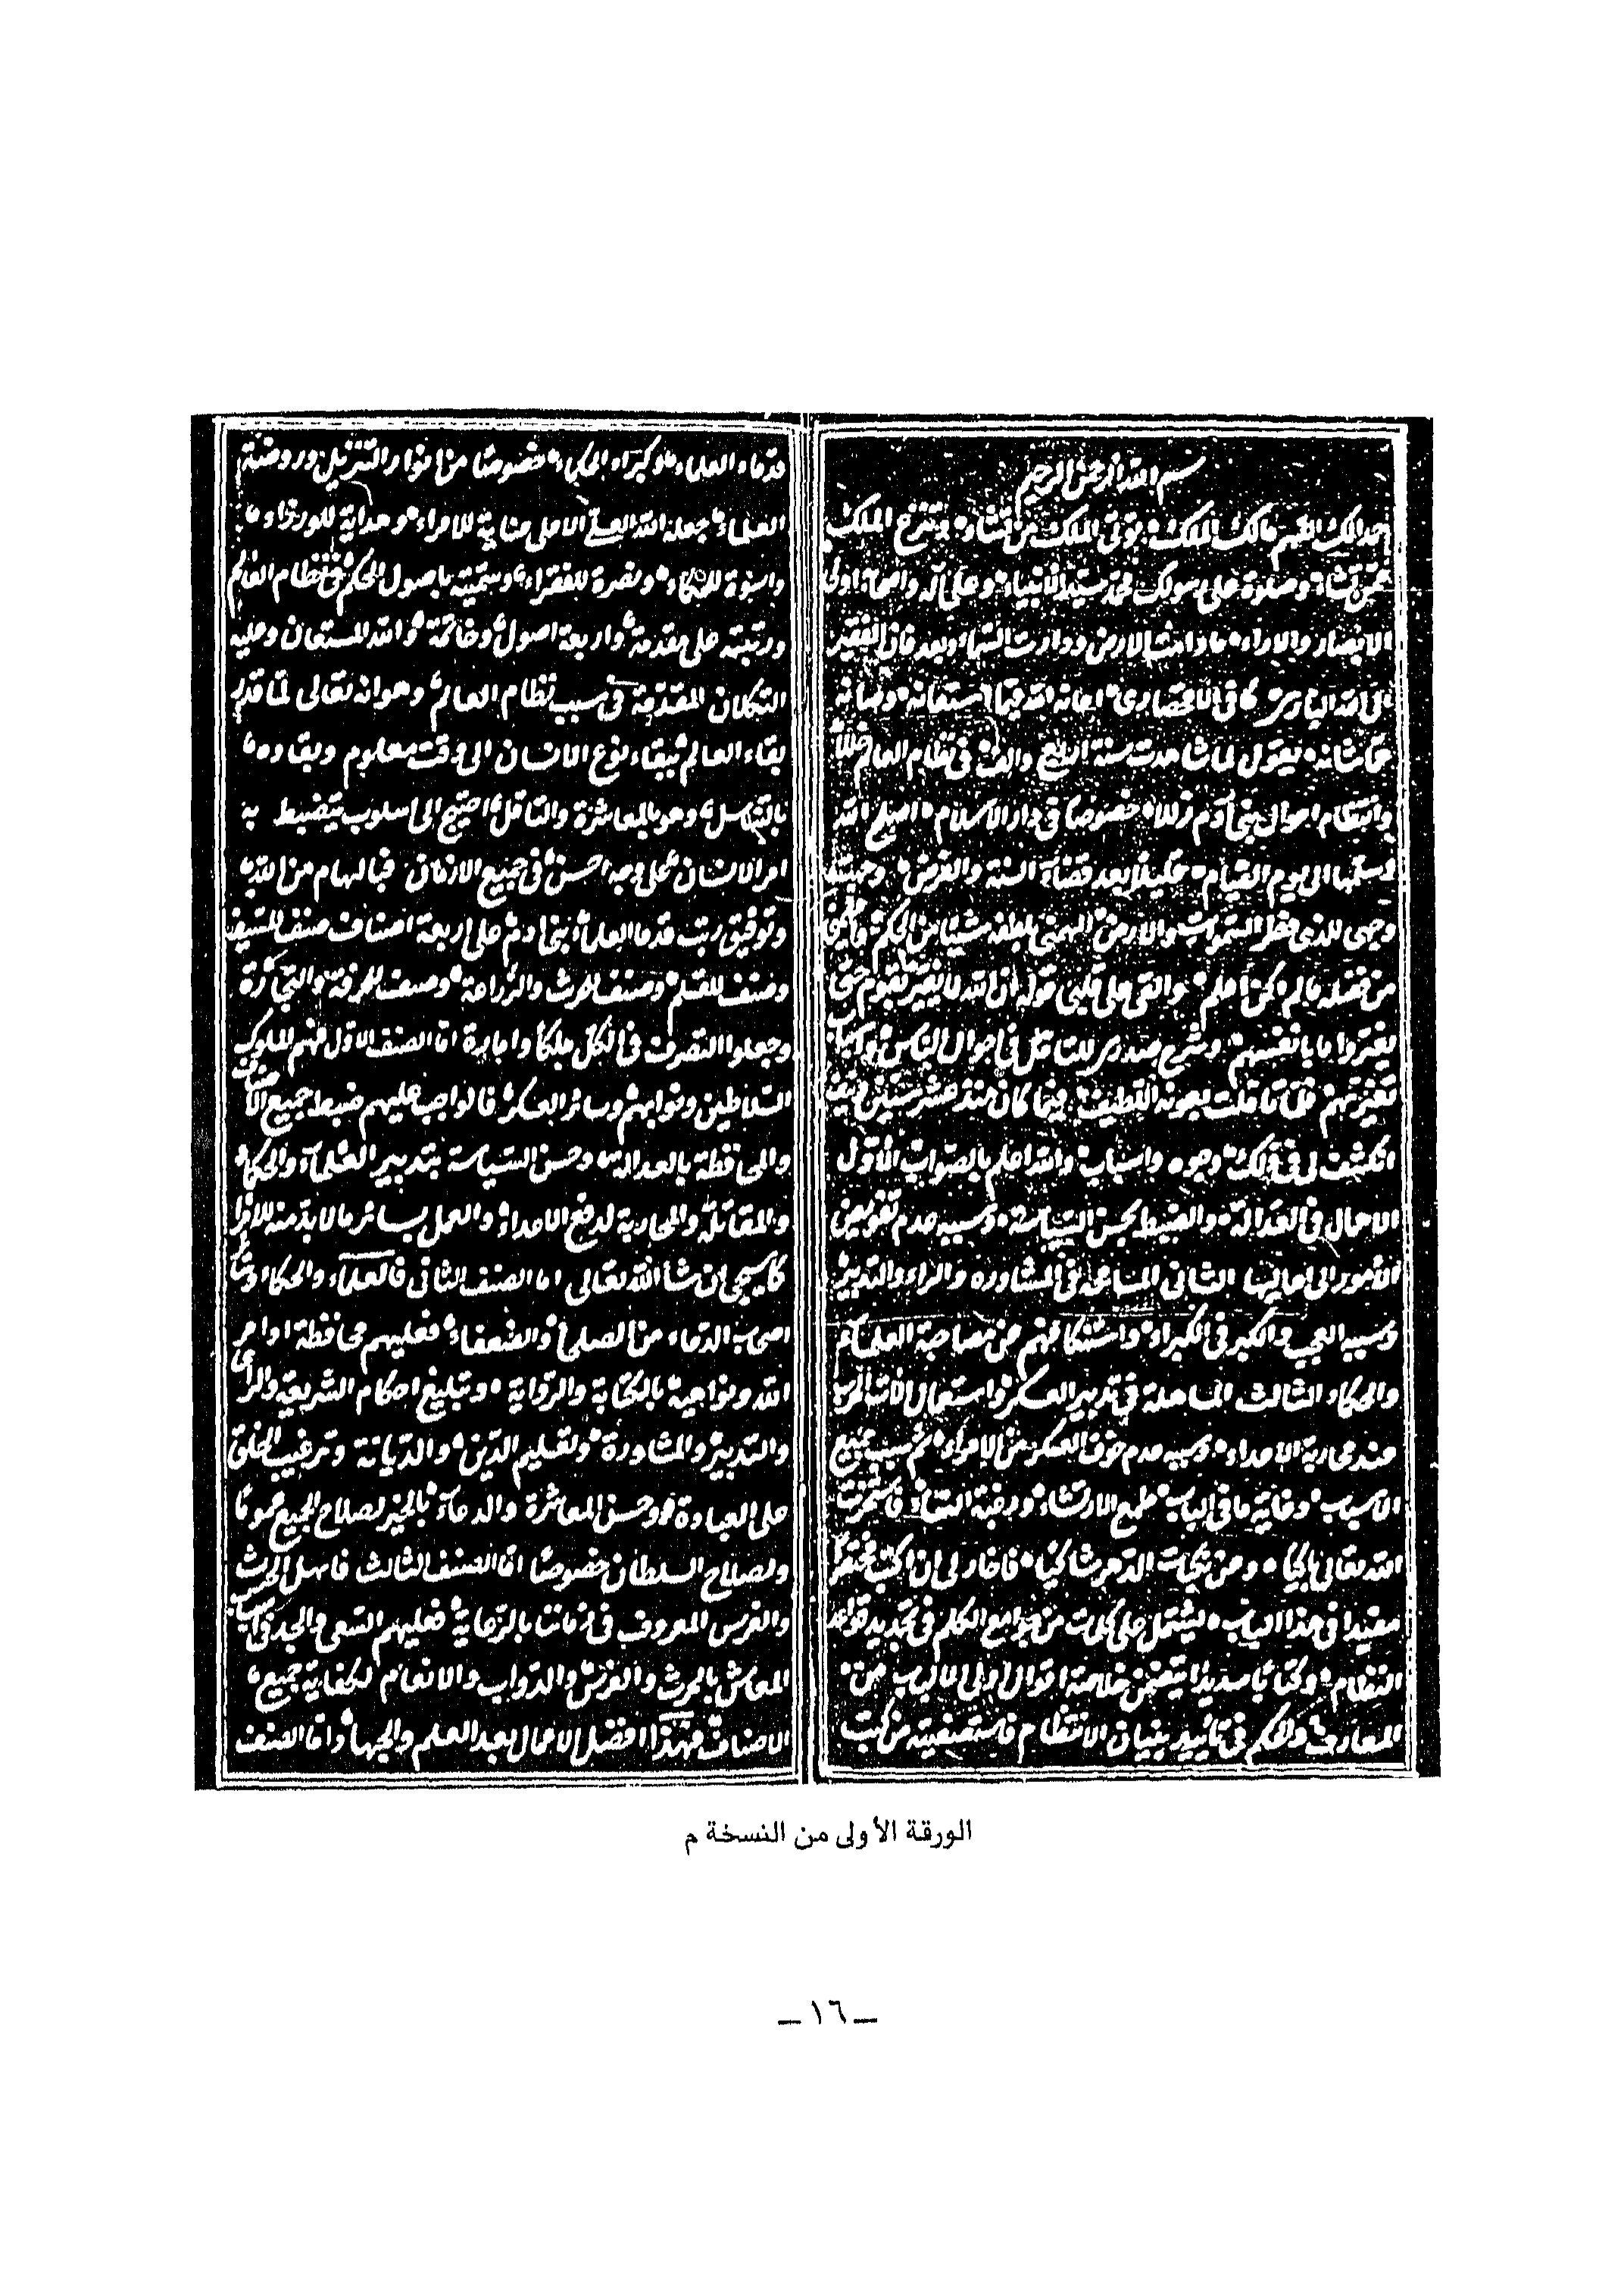 بسم الله الرحمن الرحيم
احمدك اللهم مالك الملك تؤتى الملك من تشاء وتنزع الملك
ممن تشاء وصلوة على رسولك محمد سيد الانبياء وعلى آله واصحابه اولى
الابصار والاراء ما دامت الارض ودارت السماء وبعد فان الفقير
الى الله البارى كافى الاقحصارى اعانه الله فيما استعانه وصانه
عما شانه يقول لما شاهدت سنة اربع والف فى نظام العالم خللا
وانتظام احوال بنى آدم زللا خصوصا فى دار الاسلام اصلح الله
وسلمها الى يوم القيام بعد قضاء السنة والفرض وجهت
وجهى للذى فطر السموات والارض الهمنى بلطفه شيئا من الحكم
من فضله ما لم اكن اعلم والقى على قلبى قوله ان الله لا يغير بقوم حتى
يغيروا ما بانفسهم وشرح صدرى للتامل فى احوال الناس واسباب
تغيرهم فيما كان منذ عشر سنين
انكشفت لى فى ذلك وجوه واسباب والله اعلم بالصواب الاول
الاهمال فى العدالة والضبط بحسن السياسة وسببه عدم تفويض
الامور الى اهاليها الثانى المسامحة فى المشاورة والراء والتدبير
وسببه العجب والكبر فى الكبراء واستنكافهم عن مصاحبة العلماء
والحكماء الثالث المساهلة فى تدبير العسكر واستعمال الات الحرب
عند محاربة الاعداء وسببه عدم خوف العسكر من الامراء ثم سبب جميع
الاسباب وغاية ما فى الباب طمع الارتشاء ورغبة النساء
الله تعالى باكيا ومن نكبات الدهر شاكيا فاختار لى ان اكتب مختصرا
مفيدا فى هذا الباب يشتمل على كلمات من جوامع الكلم فى تجديد قواعد
النظام وكتابا سديدا يتضمن خلاصة اقوال اولى الالباب من
المعارف والحكم فى تاييد بنيان الانتظام فاستصفيته من كتب
قدماء العلماء وكبراء الحكماء خصوصا من انوار التنزيل وروضة
العلماء جعله الله العلى الاعلى عناية للامراء وهداية للوزراء
واسوة للحكماء ونصرة للفقراء وسميته باصول الحكم فى نظام العالم
ورتبته على مقدمة واربعة اصول وخاتمة والله المستعان وعليه
التكلان المقدمة فى سبب نظام العالم وهو انه تعالى لما قدر
بقاء العالم ببقاء نوع الانسان الى وقت معلوم وبقاءه
بالتناسل وهو بالمعاشرة احتيج الى اسلوب ينضبط به
امر الانسان على وجه احسن فى جميع الازمان فبالهام من الله
وتوفيق رتب قدماء العلماء بنى ادم على اربعة اصناف صنف للسيف
وصنف للقلم وصنف للحرث والزراعة وصنف للحرفة والتجارة
وجعلوا التصرف فى الكل ملكا وامارة اما الصنف الاول فهم الملوك
السلاطين ونوابهم وسائر العسكر فالواجب عليهم ضبط جميع الاصناف
والمحافظة بالعدالة وحسن السياسة بتدبير العلماء والحكماء
والمقاتلة والمحاربة لدفع الاعداء والعمل بسائر ما لا بد منه للامراء
كما سيجى ان شاء الله تعالى اما الصنف الثانى فالعلماء والحكماء وسائر
اصحاب الدعاء من الصلحاء والضعفاء فعليهم محافظة اوامر
الله ونواهيه بالكتابة والرواية وتبليغ احكام الشريعة والراى
والتدبير والمشاورة وتعليم الدين والديانة وترغيب الخلق
على العبادة وحسن المعاشرة والدعاء بالخير لصلاح الجميع عموما
ولصلاح السلطان خصوصا اما الصنف الثالث فاهل الحرث
والغرس المعروف فى زماننا بالرعاية فعليهم السعى والجد فى
المعاش بالحرث والغرس والدواب والانعام لكفاية جميع
الاصناف فهذا افضل الاعمال بعد العلم والجهاد واما الصنف
الورقة الأولى من النسخة م
– ١٦ –